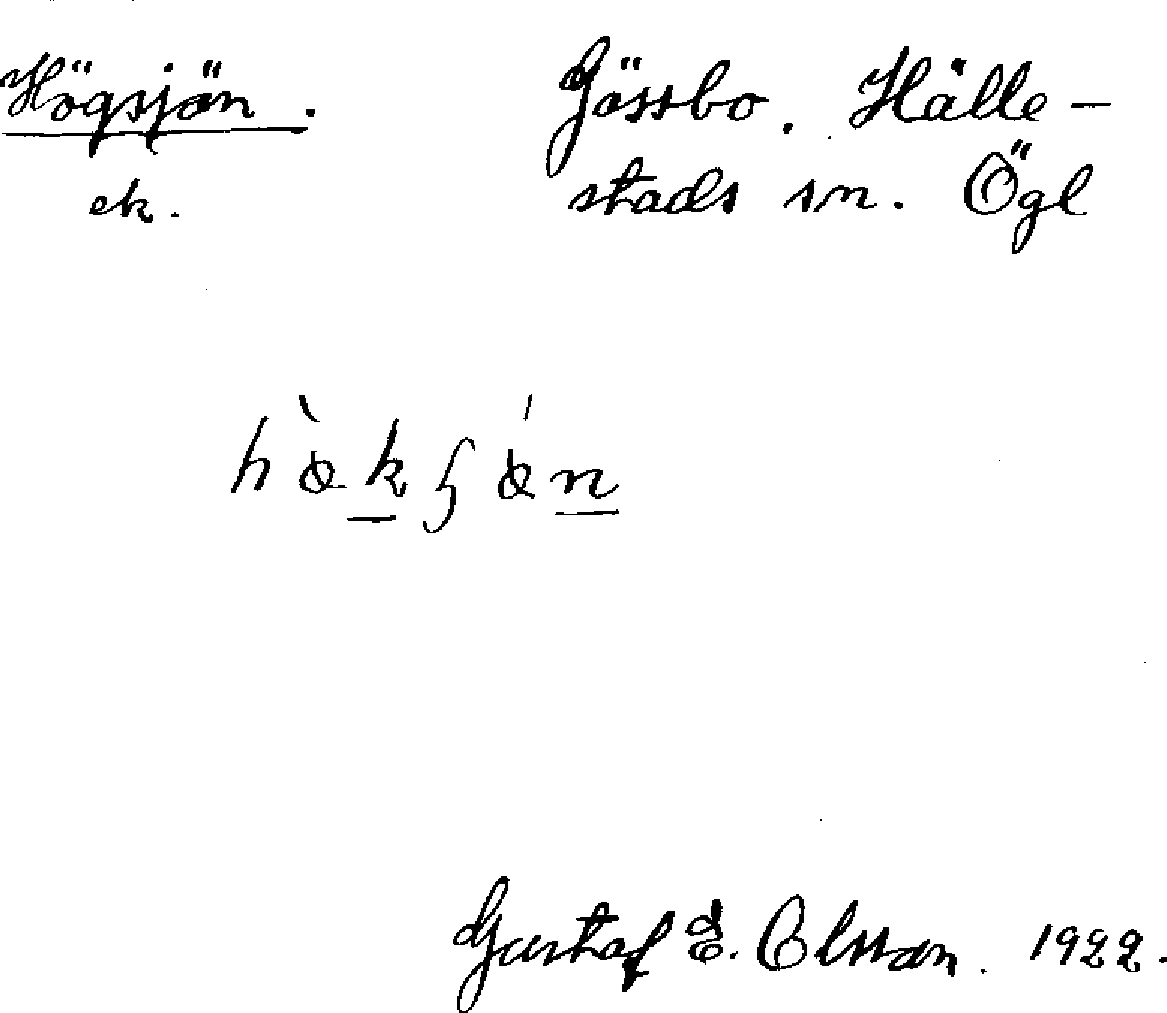 Högsjön. Jössbo. Hälle-
ek. stads sn. Ögl
Gustaf E. Olsson. 1922.